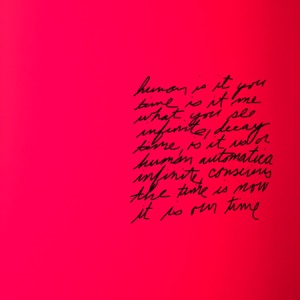 human is it you
time, is it me
what you see
infinite, decay
time, is it us or
human automatica
infinite, conscious
the time is now
it is our time